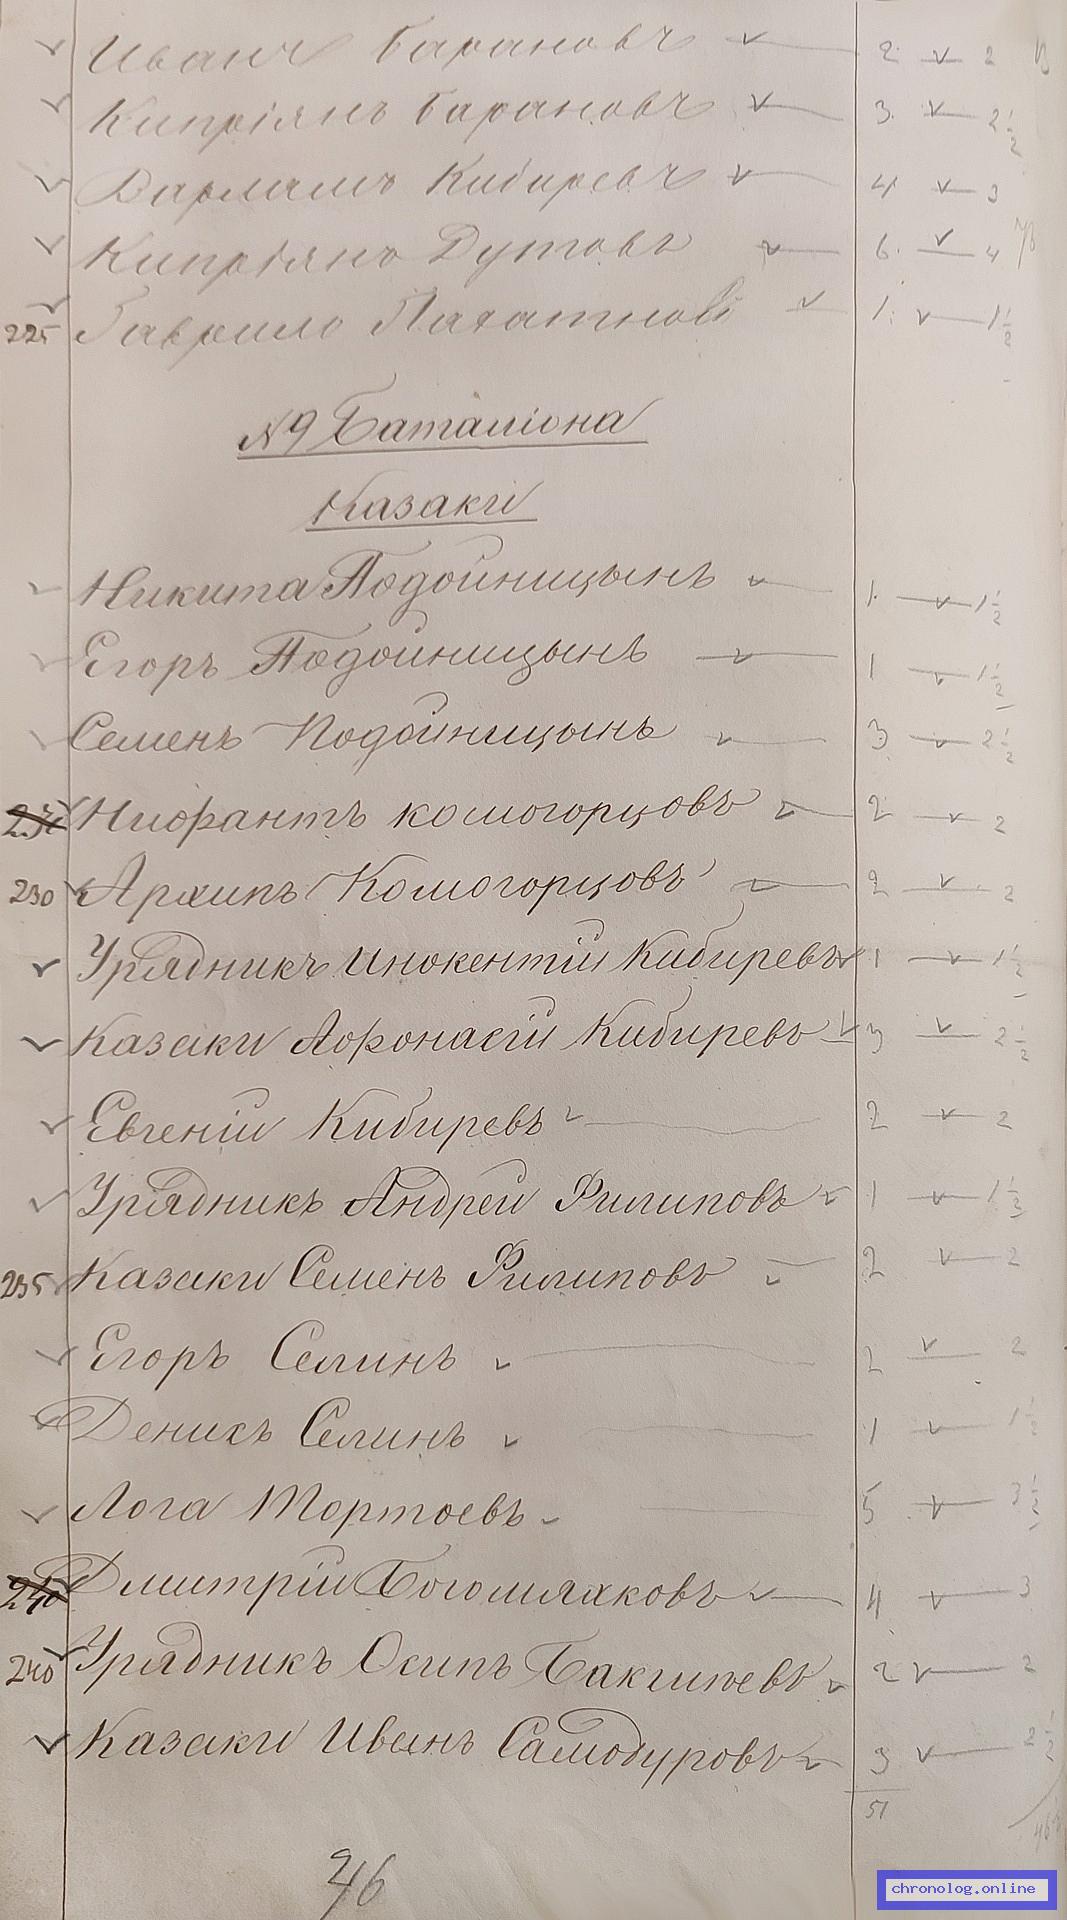 Иванъ Барановъ 2 2
Кипріянъ Барановъ 3 2 1/2
Варламъ Кибиревъ 4 3
Кипріянъ Дутовъ 6 4
225 Гаврило 1 1 1/2
№9 Баталіона
Казаки
Никита Подойницынъ 1 1 1/2
Егоръ Подойницынъ 1 1 1/2
Семенъ Подойницынъ 3 2 1/2
Ниофантъ Комогорцовъ 2 2
230 Архипъ Комогорцовъ 2 2
Урядникъ Инокентій Кибиревъ 1 1 1/2
Казаки Афонасій Кибиревъ 3 2 1/2
Евгеній Кибиревъ 2 2
Урядникъ Андрей Филиповъ 1 1 1/2
235 Казаки Семенъ Филиповъ 2 2
Егоръ Селинъ 2 2
Денисъ Селинъ 1 1 1/2
Лога Тортоевъ 5 3 1/2
240 Дмитрій Богомяхковъ 4 3
240 Урядникъ Осипъ 2 2
Казаки Иванъ Самодуровъ 3 2 1/2
51
46
chronolog.online